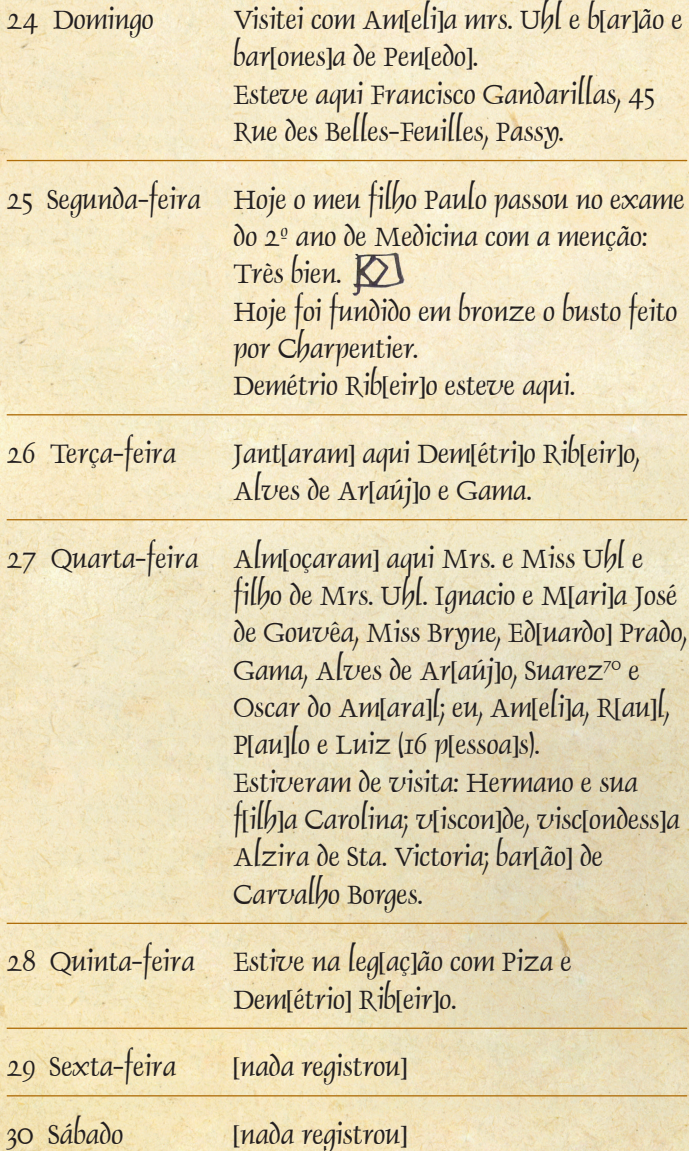 24 Domingo Visitei com Am[eli]a mrs. Uhl e b[ar]ão e
bar[ones]a de Pen[edo].
Esteve aqui Francisco Gandarillas, 45
Rue des Belles-Feuilles, Passy.
25 Segunda-feira Hoje o meu filho Paulo passou no exame
do 2º ano de Medicina com a menção:
Très bien.
Hoje foi fundido em bronze o busto feito
por Charpentier.
Demétrio Rib[eir]o esteve aqui.
26 Terça-feira Jant[aram] aqui Dem[étri]o Rib[eir]o,
Alves de Ar[aúj]o e Gama.
27 Quarta-feira Alm[oçaram] aqui Mrs. e Miss Uhl e
filho de Mrs. Uhl. Ignacio e M[ari]a José
de Gouvêa, Miss Bryne, Ed[uardo] Prado,
Gama, Alves de Ar[aúj]o, Suarez70 e
Oscar do Am[ara]l; eu, Am[eli]a, R[au]l,
P[au]lo e Luiz (16 p[essoa]s).
Estiveram de visita: Hermano e sua
f[ilh]a Carolina; v[iscon]de, visc[ondess]a
Alzira de Sta. Victoria; bar[ão] de
Carvalho Borges.
28 Quinta-feira Estive na leg[aç]ão com Piza e
Dem[étrio] Rib[eir]o.
29 Sexta-feira [nada registrou]
30 Sábado [nada registrou]